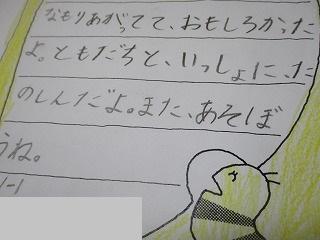 なもりあがってて、おもしろかった
よ。ともだちと、いっしょに、た
のしんだよ。また、あそぼ
うね。
1-1